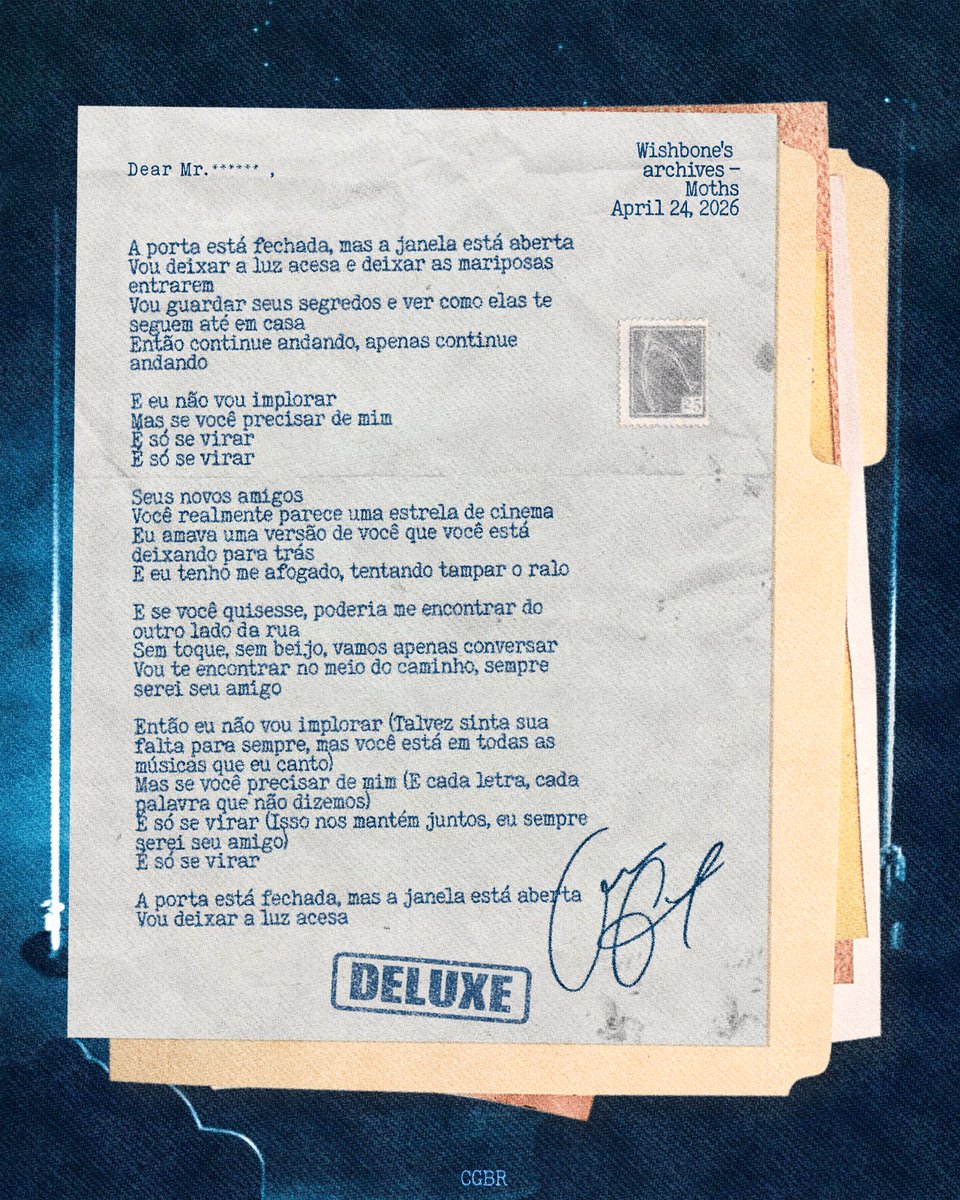 Dear Mr.****** ,
Wishbone's
archives –
Moths
April 24, 2026
A porta está fechada, mas a janela está aberta
Vou deixar a luz acesa e deixar as mariposas
entrarem
Vou guardar seus segredos e ver como elas te
seguem até em casa
Então continue andando, apenas continue
andando
E eu não vou implorar
Mas se você precisar de mim
É só se virar
É só se virar
Seus novos amigos
Você realmente parece uma estrela de cinema
Eu amava uma versão de você que você está
deixando para trás
E eu tenho me afogado, tentando tampar o ralo
E se você quisesse, poderia me encontrar do
outro lado da rua
Sem toque, sem beijo, vamos apenas conversar
Vou te encontrar no meio do caminho, sempre
serei seu amigo
Então eu não vou implorar (Talvez sinta sua
falta para sempre, mas você está em todas as
músicas que eu canto)
Mas se você precisar de mim (E cada letra, cada
palavra que não dizemos)
É só se virar (Isso nos mantém juntos, eu sempre
serei seu amigo)
É só se virar
A porta está fechada, mas a janela está aberta
Vou deixar a luz acesa
DELUXE
CGBR